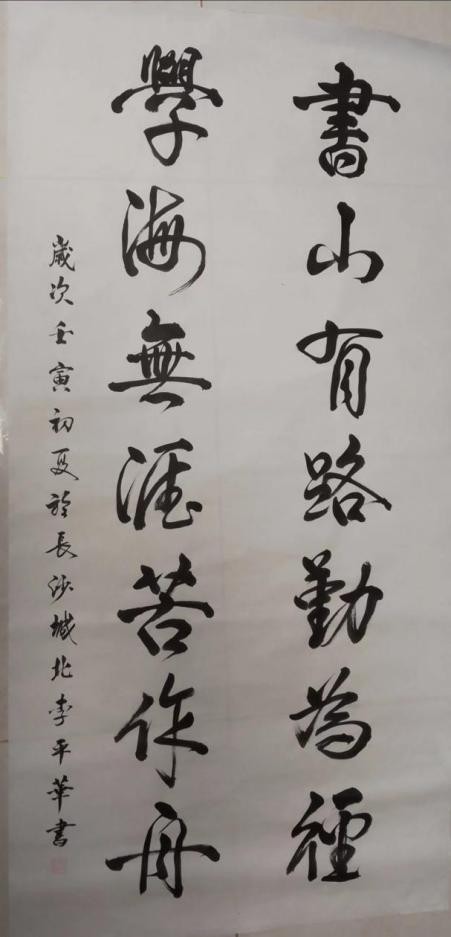 書山有路勤為徑
學海無涯苦作舟
歲次壬寅初夏於長沙城北李平華書